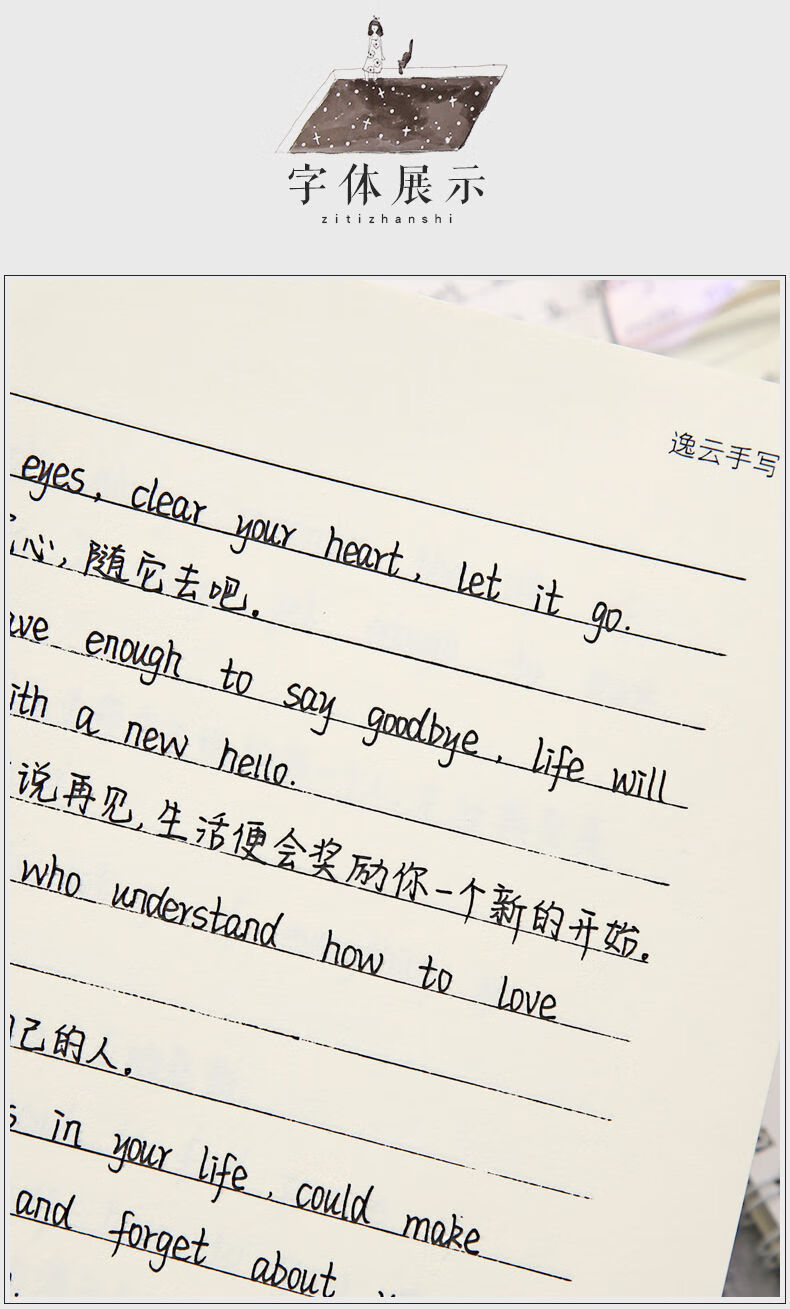 字体展示
zitizhanshi
逸云手写
eyes, clear your heart, let it go.
心,随它去吧。
enough to say goodbye, life will
a new hello.
说再见,生活便会奖励你一个新的开始。
who understand how to love
己的人。
in your life, could make
and forget about